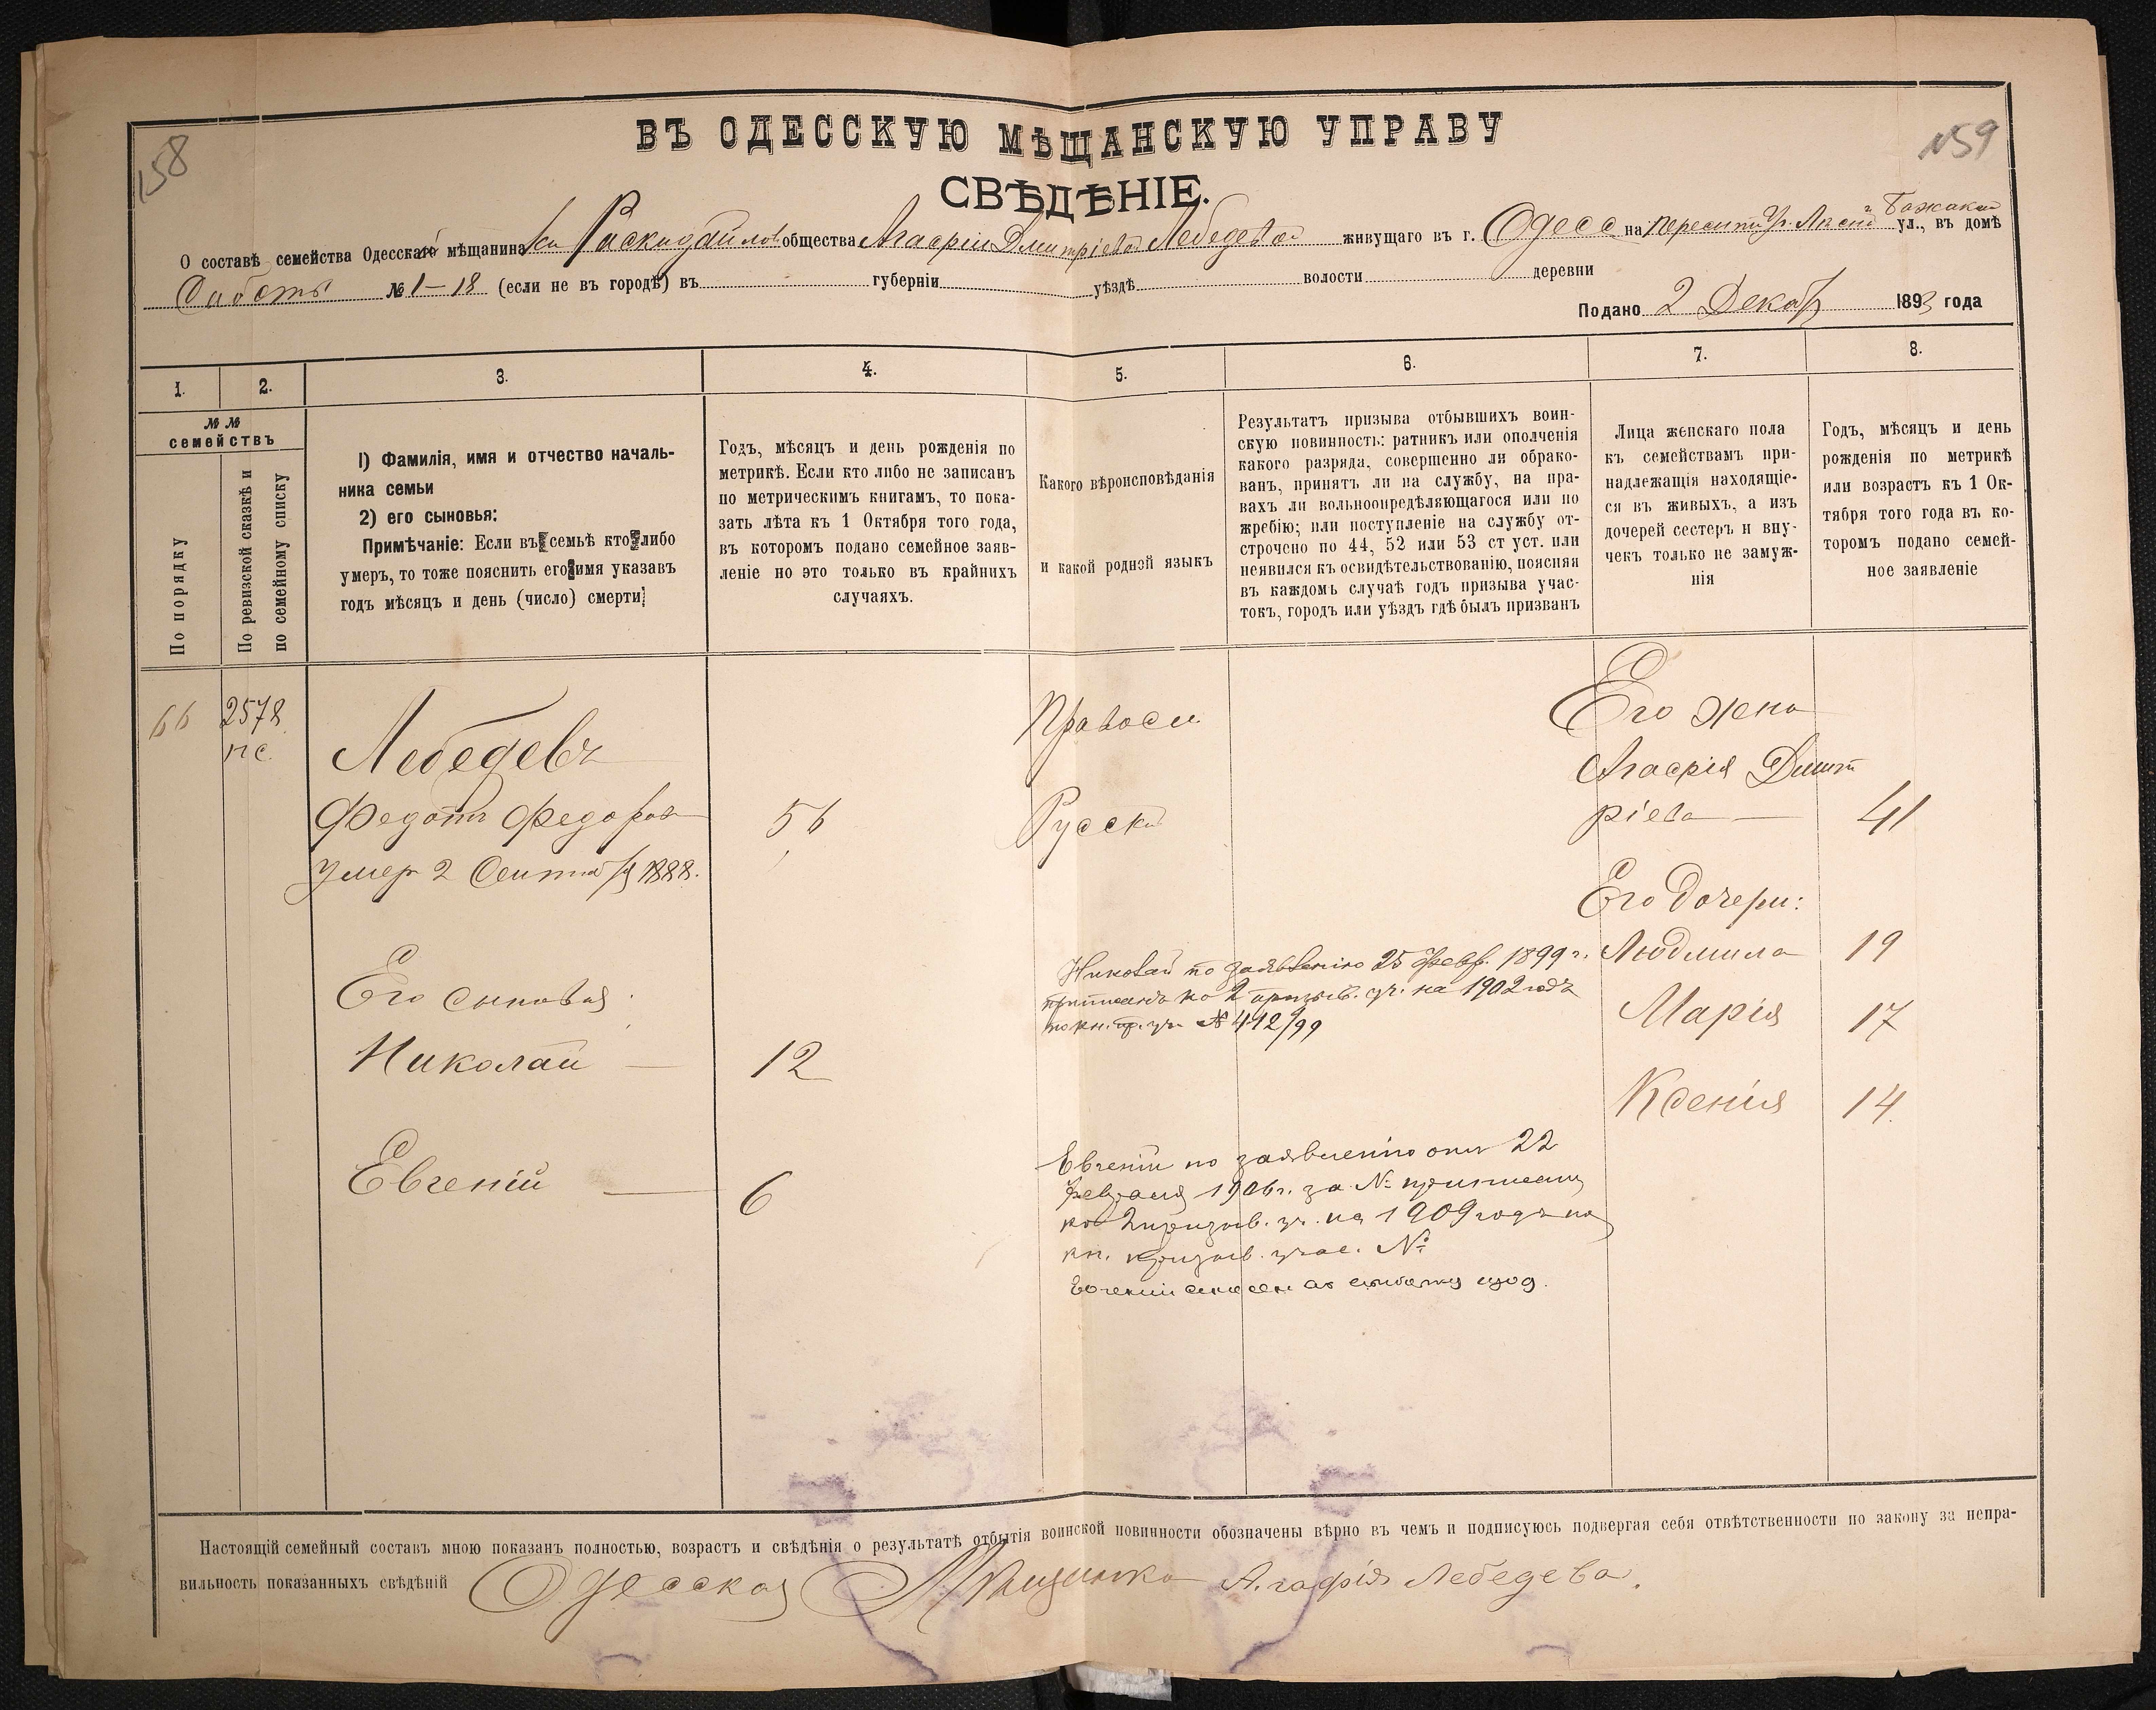 158
159
ВЪ ОДЕССКУЮ МѢЩАНСКУЮ УПРАВУ
СВѢДѢНІЕ.
О составѣ семейства Одесской мѣщанинаки Раскидайлов общества Агафіи Дмитріевой Лебедевой живущаго въ г. Одесс на Пересыпи ул., въ домѣ
№ 1–18 (если не въ городѣ) въ губерніи уѣздѣ волости деревни
Подано 2 Декабр 1893 года
1. 2. 3. 4. 5. 6. 7. 8.
№ №
семействъ
По порядку
По ревизской сказкѣ и
по семейному списку
1) Фамилія, имя и отчество началь-
ника семьи
2) его сыновья:
Примѣчаніе: Если въ семьѣ кто либо
умеръ, то тоже пояснить его имя указавъ
годъ мѣсяцъ и день (число) смерти
Годъ, мѣсяцъ и день рожденія по
метрикѣ. Если кто либо не записанъ
по метрическимъ книгамъ, то пока-
зать лѣта къ 1 Октября того года,
въ которомъ подано семейное заяв-
леніе но это только въ крайнихъ
случаяхъ.
Какого вѣроисповѣданія
и какой родной языкъ
Результатъ призыва отбывшихъ воин-
скую повинность: ратникъ или ополченія
какого разряда, совершенно ли обрако-
ванъ, принятъ ли на службу, на пра-
вахъ ли вольноопредѣляющагося или по
жребію; или поступленіе на службу от-
строчено по 44, 52 или 53 ст уст. или
неявился къ освидѣтельствованію, поясняя
въ каждомъ случаѣ годъ призыва учас-
токъ, городъ или уѣздъ гдѣ былъ призванъ
Лица женскаго пола
къ семействамъ при-
надлежащія находящіе-
ся въ живыхъ, а изъ
дочерей сестеръ и вну-
чекъ только не замуж-
нія
Годъ, мѣсяцъ и день
рожденія по метрикѣ
или возрастъ къ 1 Ок-
тября того года въ ко-
торомъ подано семей-
ное заявленіе
66 2578
пс.
Лебедевъ
Федотъ Федоров 56
умер 2 Сентября 1888.
Правосл
Русскі
Его жена
Агафія Дмит
ріева — 41
Его дочери:
Людмила 19
Марія 17
Ксенія 14
Его сыновья:
Николай — 12
Евгеній — 6
Николай по заявленію 25 Февр. 1899 г.
приписанъ ко 2 призыв. уч. на 1902 годъ
по кн. пр. уч. № 412/99
Евгеній по заявленію отъ 22
февраля 1906 г. за № приписанъ
ко 2 призыв. уч. на 1909 годъ по
кн. призыв. учас. №
Настоящій семейный составъ мною показанъ полностью, возрастъ и свѣдѣнія о результатѣ отбытія воинской повинности обозначены вѣрно въ чемъ и подписуюсь подвергая себя отвѣтственности по закону за непра-
вильность показанныхъ свѣдѣній Одесская Мѣщанка Агафія Лебедева.